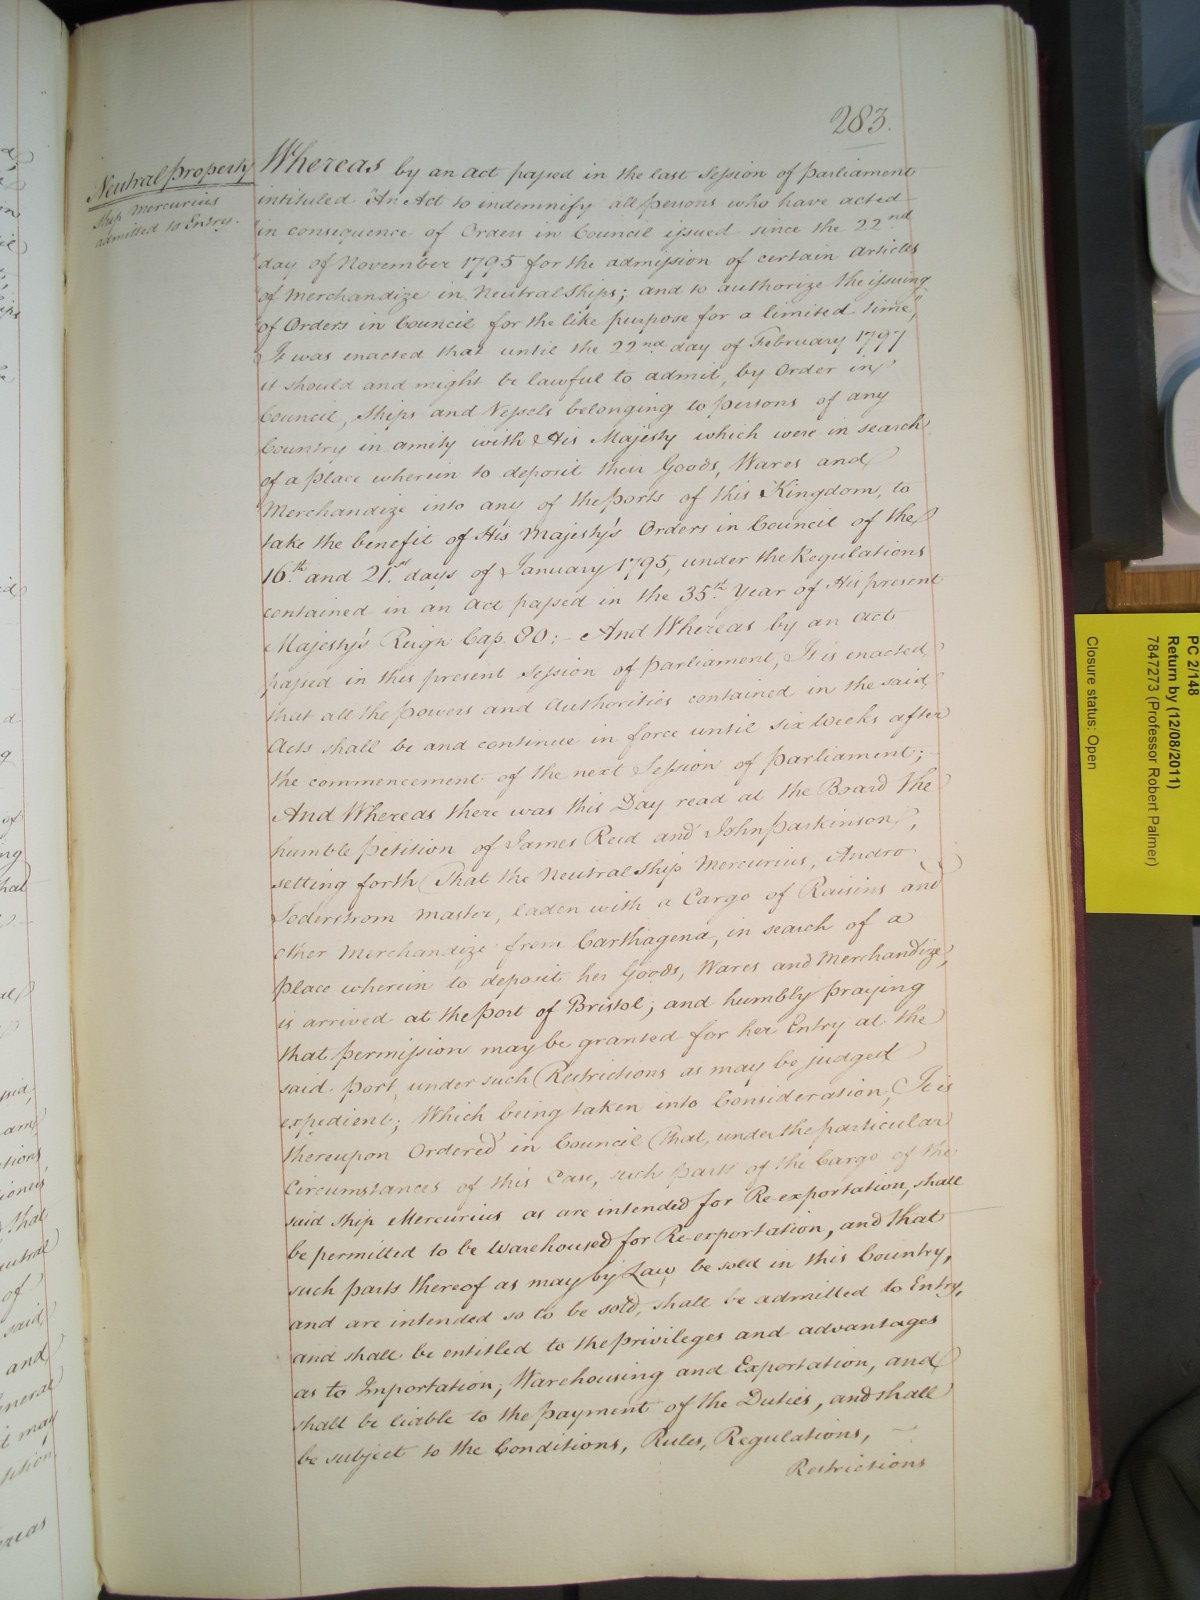 283.
Neutral property
Ship Mercurius
admitted to Entry.
Whereas by an act passed in the last Session of Parliament
intituled "An Act to indemnify all persons who have acted
"in consequence of Orders in Council issued since the 22nd
"day of November 1795 for the admission of certain articles
"of Merchandize in Neutral Ships; and to authorize the issuing
"of Orders in Council for the like purpose for a limited time,"
It was enacted that until the 22nd day of February 1797
it should and might be lawful to admit, by Order in
Council, Ships and Vessels belonging to persons of any
Country in amity with His Majesty which were in search
of a place wherein to deposit their Goods, Wares and
Merchandize into any of the ports of this Kingdom, to
take the benefit of His Majesty's Orders in Council of the
16th and 21st days of January 1795, under the Regulations
contained in an act passed in the 35th Year of His present
Majesty's Reign Cap. 80:- And Whereas by an act
passed in this present Session of parliament, It is enacted
that all the powers and Authorities contained in the said
Acts shall be and continue in force until six Weeks after
the commencement of the next Session of parliament;-
And Whereas there was this Day read at the Board the
humble petition of James Reid and John Parkinson,
setting forth That the Neutral Ship Mercurius, Andro
Soderstrom Master, laden with a Cargo of Raisins and
other Merchandize from Carthagena, in search of a
place wherein to deposit her Goods, Wares and Merchandize,
is arrived at the port of Bristol; and humbly praying
that permission may be granted for her Entry at the
said port, under such Restrictions as may be judged
expedient; Which being taken into Consideration, It is
thereupon Ordered in Council That, under the particular
Circumstances of this Case, such parts of the Cargo of the
said Ship Mercurius as are intended for Re-exportation, shall
be permitted to be Warehoused for Re-exportation, and that
such parts thereof as may by Law be sold in this Country,
and are intended so to be sold, shall be admitted to Entry,
and shall be entitled to the privileges and advantages
as to Importation, Warehousing and Exportation, and
shall be liable to the payment of the Duties, and shall
be subject to the Conditions, Rules, Regulations,
Restrictions
PC 2/148
Return by (12/08/2011)
7847273 (Professor Robert Palmer)
Closure status: Open